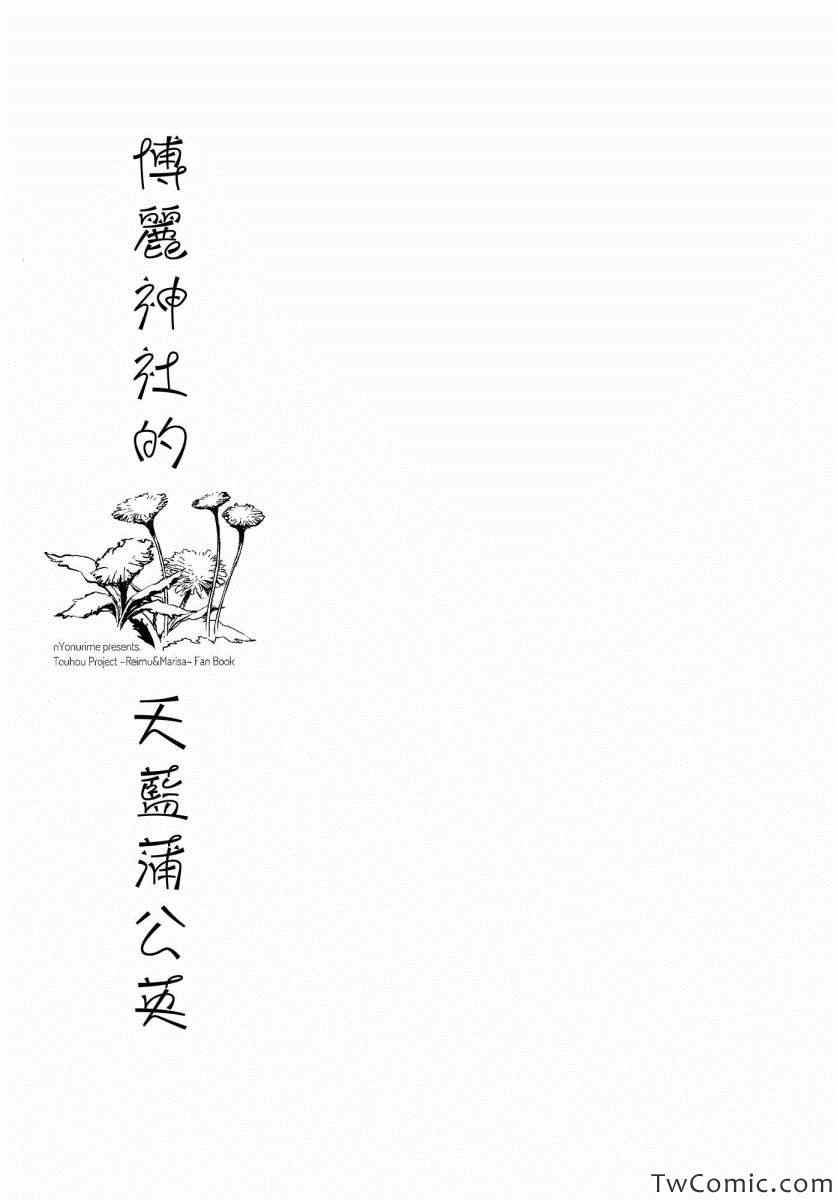 博麗神社的
nYonurime presents.
Touhou Project -Reimu&Marisa- Fan Book
天藍蒲公英
TwComic.com